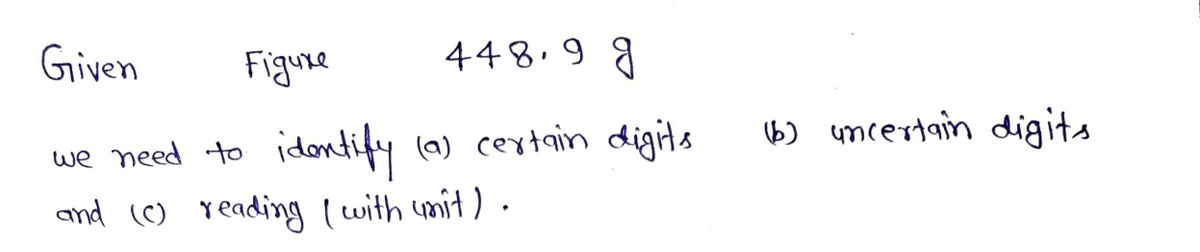 Given Figure 448.9 g
we need to identify (a) certain digits (b) uncertain digits
and (c) reading (with unit).